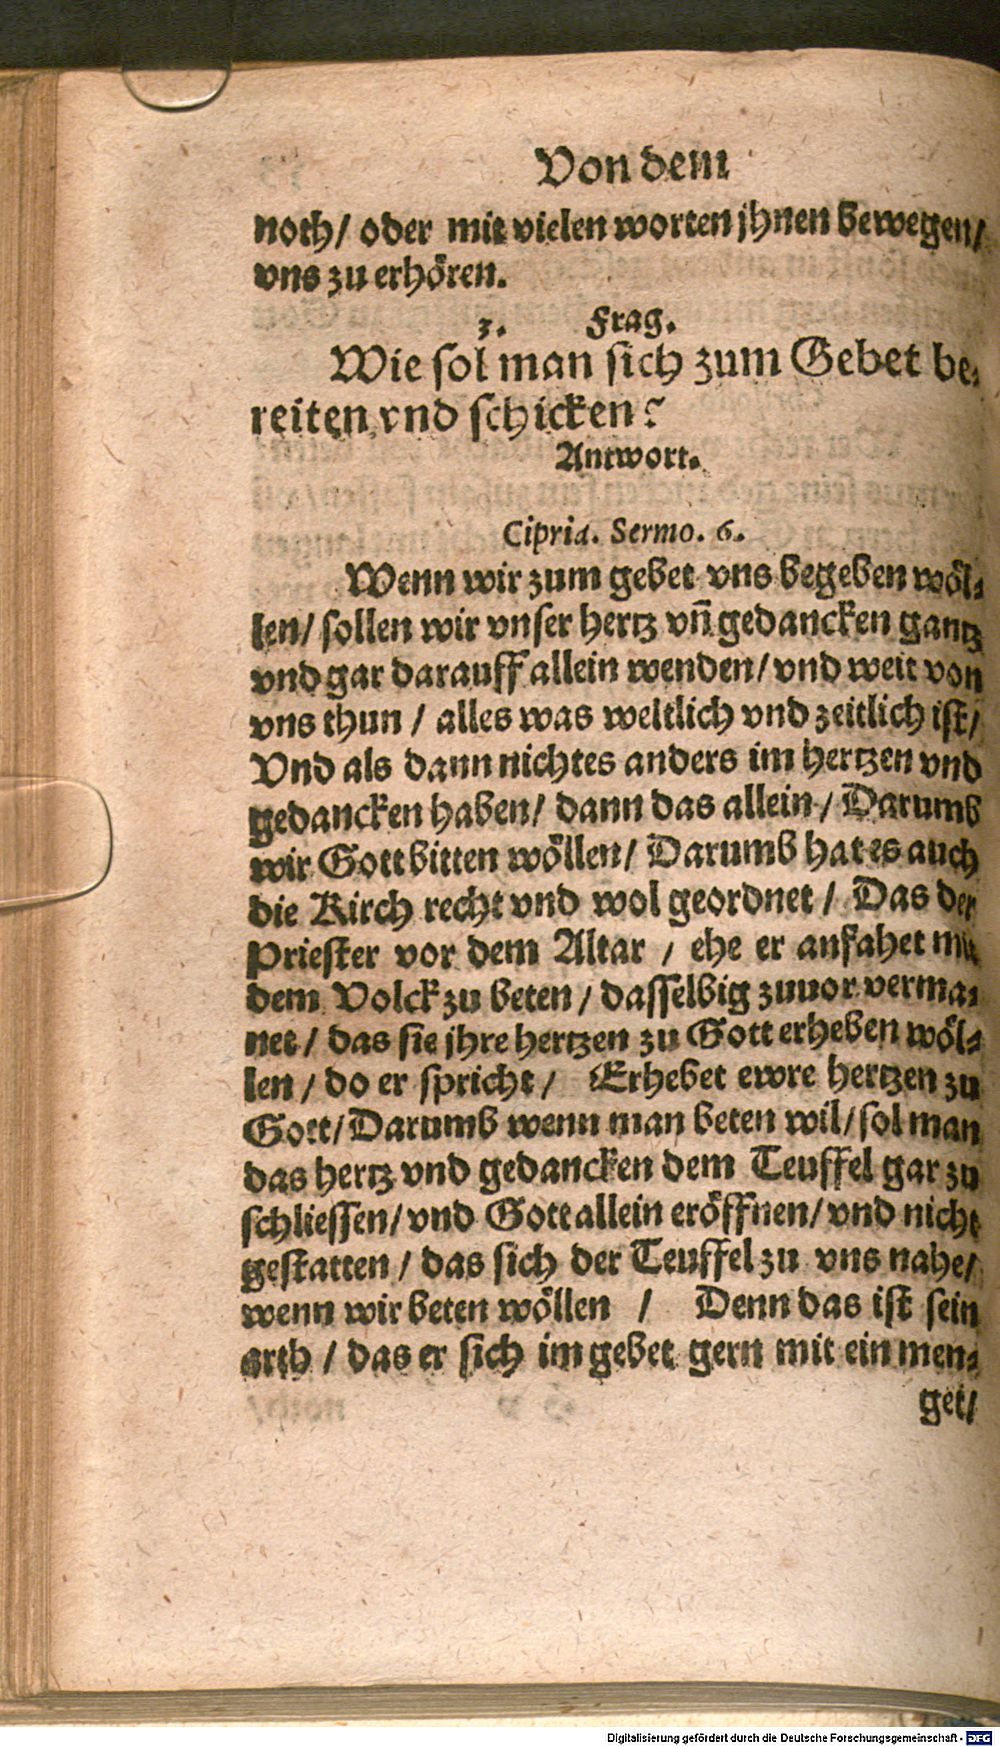 Von dem
noth/ oder mit vielen worten jhnen bewegen/
vns zu erhören.
3. Frag.
Wie sol man sich zum Gebet be-
reiten vnd schicken?
Antwort.
Cipria. Sermo. 6.
Wenn wir zum gebet vns begeben wöl-
len/ sollen wir vnser hertz vn̄ gedancken gantz
vnd gar darauff allein wenden/ vnd weit von
vns thun / alles was weltlich vnd zeitlich ist/
Vnd als dann nichtes anders im hertzen vnd
gedancken haben/ dann das allein / Darumb
wir Gott bitten wöllen/ Darumb hat es auch
die Kirch recht vnd wol geordnet / Das der
Priester vor dem Altar / ehe er anfahet mit
dem Volck zu beten / dasselbig zuuor verma-
net / das sie jhre hertzen zu Gott erheben wöl-
len / do er spricht / Erhebet ewre hertzen zu
Gott/ Darumb wenn man beten wil/ sol man
das hertz vnd gedancken dem Teuffel gar zu
schliessen/ vnd Gott allein eröffnen/ vnd nicht
gestatten / das sich der Teuffel zu vns nahe/
wenn wir beten wöllen / Denn das ist sein
arth / das er sich im gebet gern mit ein men-
get/
Digitalisierung gefördert durch die Deutsche Forschungsgemeinschaft - DFG